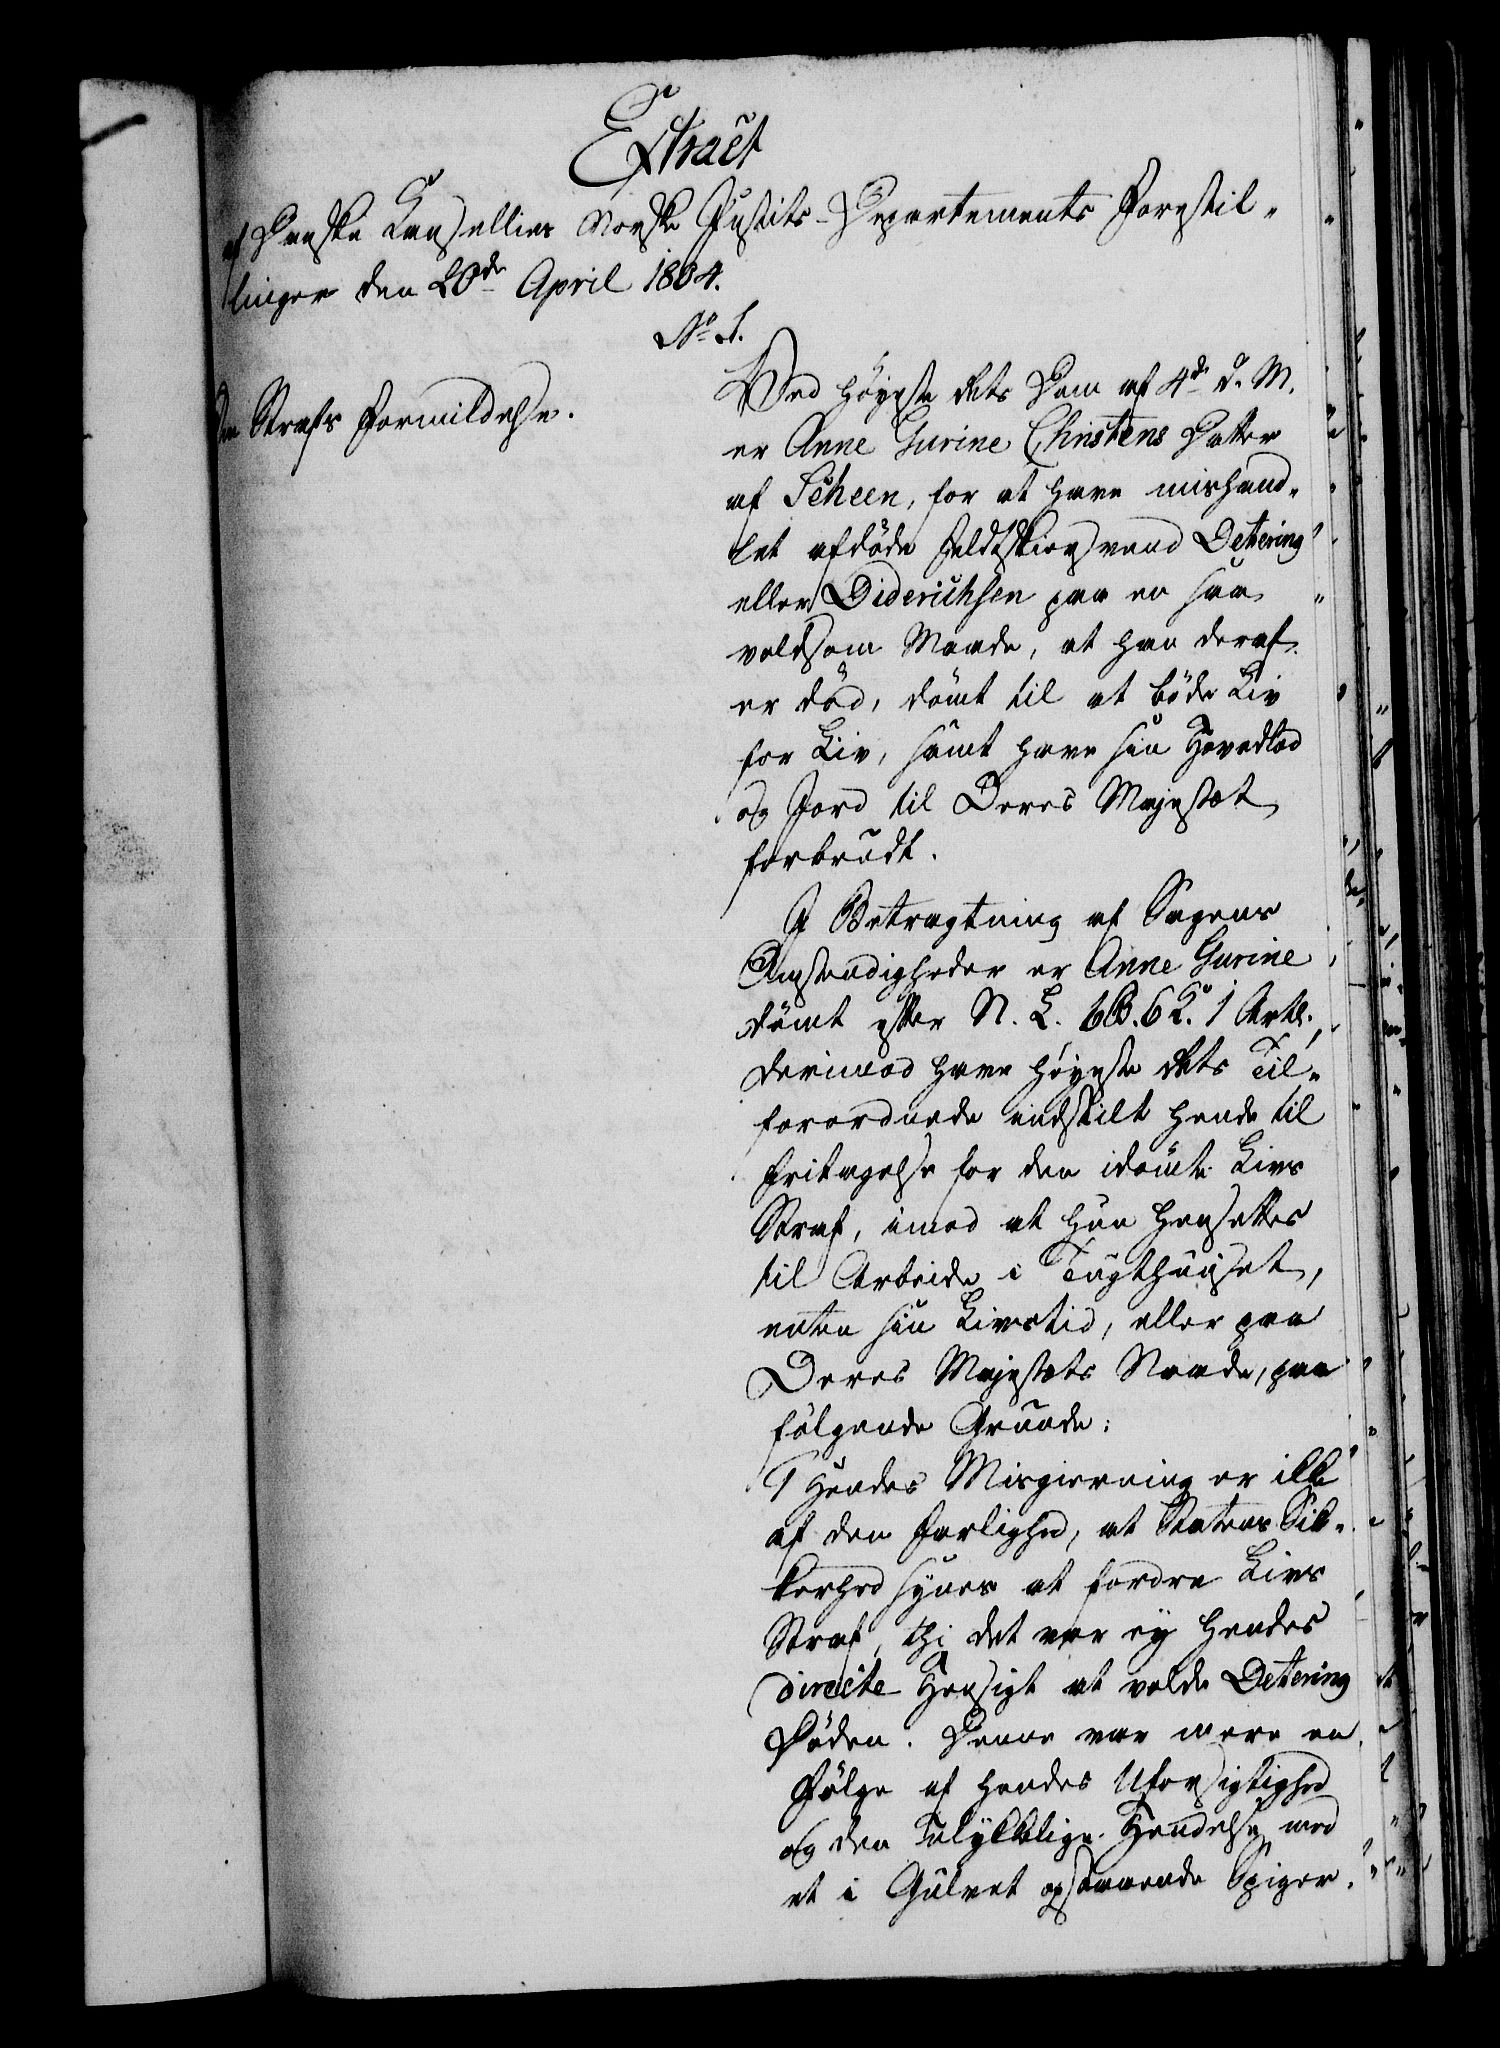 Extract
af Danske Cancellies Norske Justits-Departements Forestil-
linger den 20de April 1804.
No 1.
Om Strafs Formildelse.
Ved Høyeste Rets Dom af 4de d. M.
er Anne Gurine Christens Datter
af Scheen, for at have mishand-
let afdøde Feldtskiersvend Detering
eller Diderichsen paa en saa
voldsom Maade, at han deraf
er død, dømt til at bøde Liv
for Liv, samt have sin Hovedlod
og Jord til Deres Majestæt
forbrudt.
I Betragtning af Sagens
Omstændigheder er Anne Gurine
dømt efter N. L. 6 B. 6 C. 1 Artl.
derimod have Høyeste Rets Til-
forordnede indstilt hende til
Fritagelse for den idømte Livs
Straf, imod at hun hensættes
til Arbeide i Tugthuuset,
enten sin Livstid, eller paa
Deres Majestæts Naade, paa
følgende Grunde:
1 Hendes Misgierning er ikke
af den Farlighed, at Statens Sik-
kerhed synes at fordre Livs
Straf, thi det var ey hendes
directe Hensigt at volde Detering
Døden. Denne var mere en
Følge af hendes Uforsigtighed
og den ulykkelige Hændelse med
et i Gulvet opstaaende Spiger.